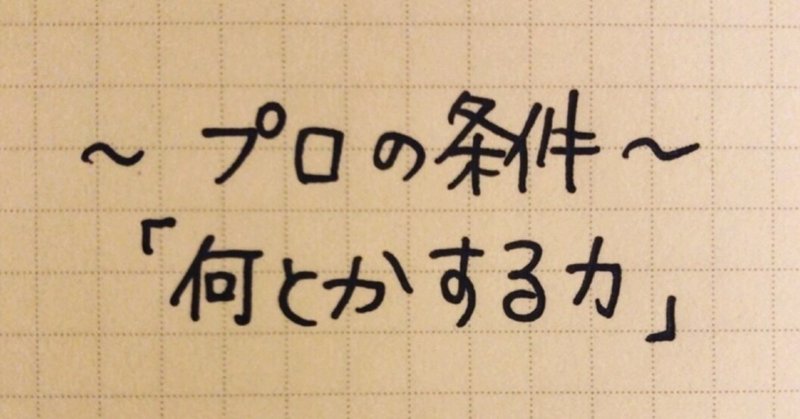 ～プロの条件～
「何とかする力」